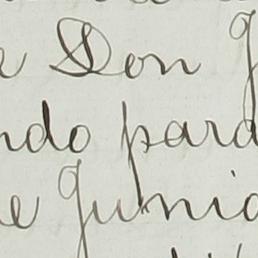 e Don J
ndo para
e Junio